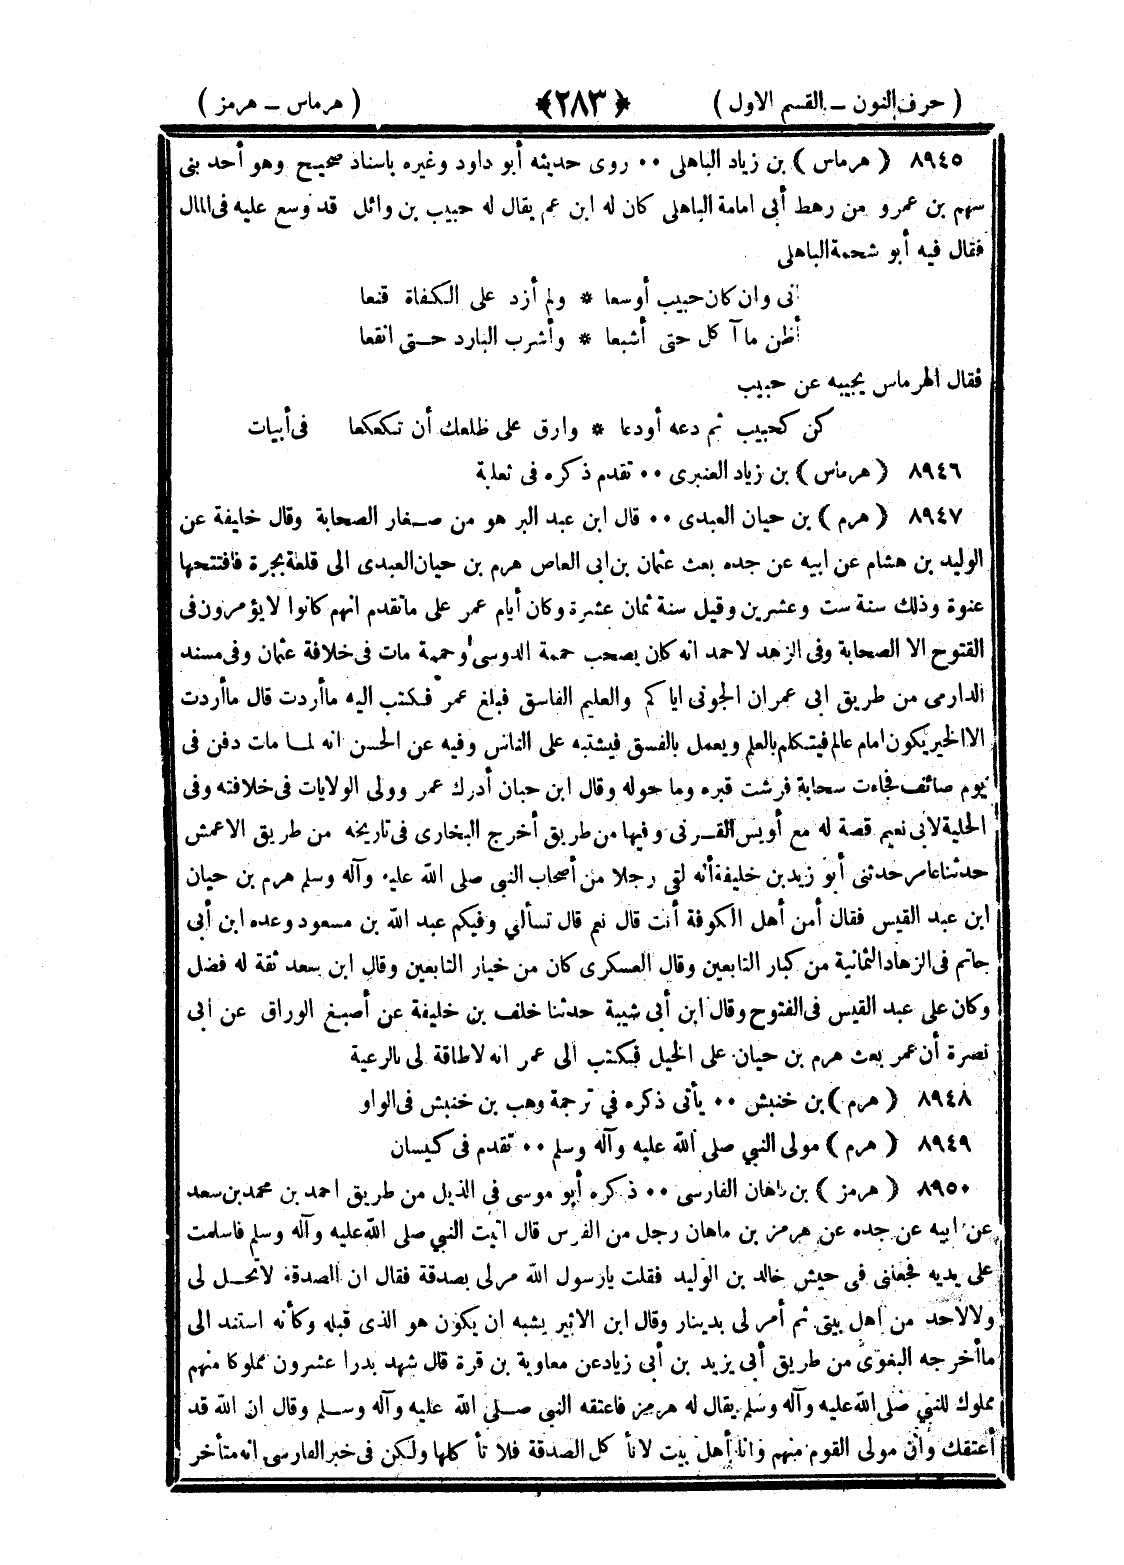 ( حرف النون – القسم الاول ) ﴿ ٢٨٣ ﴾ ( هرماس – هرمز )
٨٩٤٥ ( هرماس ) بن زياد الباهلى ٠٠ روى حديثه أبو داود وغيره باسناد صحيح وهو أحد بنى
سهم بن عمرو من رهط أبى امامة الباهلى كان له ابن عم يقال له حبيب بن وائل قد وسع عليه فى المال
فقال فيه أبو شحمة الباهلى
انى وان كان حبيب أوسعا * ولم أزد على الكفاة قنعا
أظن ما آكل حتى أشبعا * وأشرب البارد حتى انقعا
فقال الهرماس يجيبه عن حبيب
كن كحبيب ثم دعه أودعا * وارق على ظلعك أن تكعكعا فى أبيات
٨٩٤٦ ( هرماس ) بن زياد العنبرى ٠٠ تقدم ذكره فى ثعلبة
٨٩٤٧ ( هرم ) بن حيان العبدى ٠٠ قال ابن عبد البر هو من صغار الصحابة وقال خليفة عن
الوليد بن هشام عن ابيه عن جده بعث عثمان بن ابى العاص هرم بن حيان العبدى الى قلعة بجرة فافتتحها
عنوة وذلك سنة ست وعشرين وقيل سنة ثمان عشرة وكان أيام عمر على ماتقدم انهم كانوا لا يؤمرون فى
الفتوح الا الصحابة وفى الزهد لاحمد انه كان يصحب حممة الدوسى وحممة مات فى خلافة عثمان وفى مسند
الدارمى من طريق ابى عمران الجونى اياكم والعليم الفاسق فبلغ عمر فكتب اليه ماأردت قال ماأردت
الا الخير يكون امام عالم فيتكلم بالعلم ويعمل بالفسق فيشتبه على الناس وفيه عن الحسن انه لما مات دفن فى
يوم صائف فجاءت سحابة فرشت قبره وما حوله وقال ابن حبان أدرك عمر وولى الولايات فى خلافته وفى
الحلية لابى نعيم قصة له مع أويس القرنى وفيها من طريق أخرج البخارى فى تاريخه من طريق الاعمش
حدثنا عامر حدثنى أبو زيد بن خليفة أنه لقى رجلا من أصحاب النبى صلى الله عليه وآله وسلم هرم بن حيان
ابن عبد القيس فقال أمن أهل الكوفة أنت قال نعم قال تسألي وفيكم عبد الله بن مسعود وعده ابن أبى
حاتم فى الزهاد الثمانية من كبار التابعين وقال العسكرى كان من خيار التابعين وقال ابن سعد ثقة له فضل
وكان على عبد القيس فى الفتوح وقال ابن أبى شيبة حدثنا خلف بن خليفة عن أصبغ الوراق عن ابى
نصرة أن عمر بعث هرم بن حيان على الخيل فكتب الى عمر انه لا طاقة لى بالرعية
٨٩٤٨ ( هرم ) بن خنبش ٠٠ يأتى ذكره في ترجمة وهب بن خنبش فى الواو
٨٩٤٩ ( هرم ) مولى النبي صلى الله عليه وآله وسلم ٠٠ تقدم فى كيسان
٨٩٥٠ ( هرمز ) بن ماهان الفارسى ٠٠ ذكره أبو موسى فى الذيل من طريق احمد بن محمد بن سعد
عن ابيه عن جده عن هرمز بن ماهان رجل من الفرس قال اتيت النبي صلى الله عليه وآله وسلم فاسلمت
على يديه فجعلنى فى جيش خالد بن الوليد فقلت يارسول الله مرلى بصدقة فقال ان الصدقة لاتحل لى
ولا لاحد من اهل بيتى ثم أمر لى بدينار وقال ابن الاثير يشبه ان يكون هو الذى قبله وكأنه استند الى
ماأخرجه البغوى من طريق أبى يزيد بن أبى زياد عن معاوية بن قرة قال شهد بدرا عشرون مملوكا منهم
مملوك للنبي صلى الله عليه وآله وسلم يقال له هرمز فاعتقه النبى صلى الله عليه وآله وسلم وقال ان الله قد
أعتقك وان مولى القوم منهم وانا أهل بيت لانأ كل الصدقة فلا تأ كلها ولكن فى خبر الفارسى انه متأخر